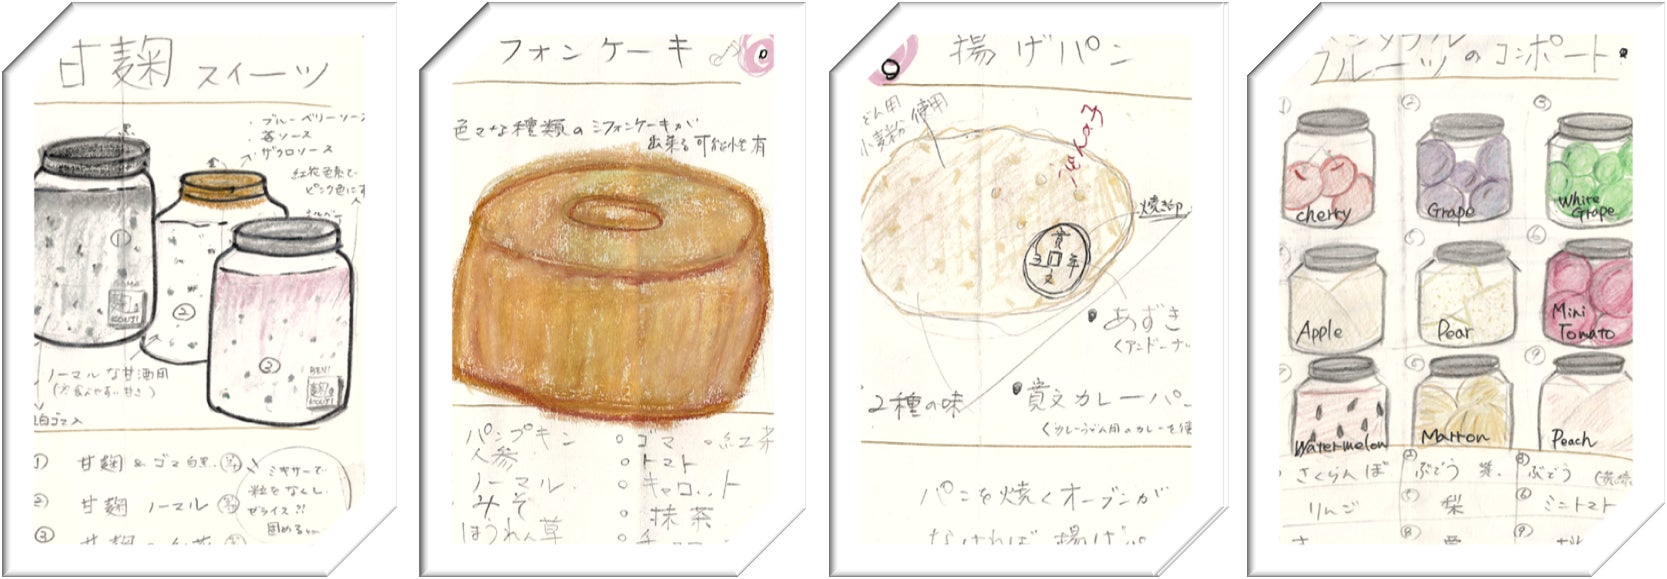 甘麹 スイーツ
黒
・ブルーベリーソース
・苺ソース
・ザクロソース
紅花色素で
ピンク色にす
金
シルバー
①
②
③
GOMA
麹
KOUJI
BENI
麹
KOUJI
ノーマルな甘酒用
(食べやすい甘さ)
白ゴマ入
① 甘麹 & ゴマ 白黒
② 甘麹 ノーマル
③ 甘麹
ミキサーで
粒をなくし
ゼライス?!
固める
フォンケーキ
色々な種類のシフォンケーキが
出来る可能性有
パンプキン
人参
ノーマル
みそ
ほうれん草
○ゴマ ○紅茶
○トマト
○キャロット
○抹茶
揚げパン
どん用
小麦粉 使用
焼き印
貫
文
年
あずき
くアンドーナ
2種の味
貫文カレーパン
くカレーうどん用のカレーを使
パンを焼くオーブンが
なければ 揚げパ
フルーツのコンポート
②
③
cherry
Grape
White
Grape
⑤
⑥
Apple
Pear
Mini
Tomato
⑨
Watermelon
Marron
Peach
さくらんぼ
② ぶどう 紫
③ ぶどう
りんご
⑤ 梨
⑥ ミニトマト
⑧
⑨